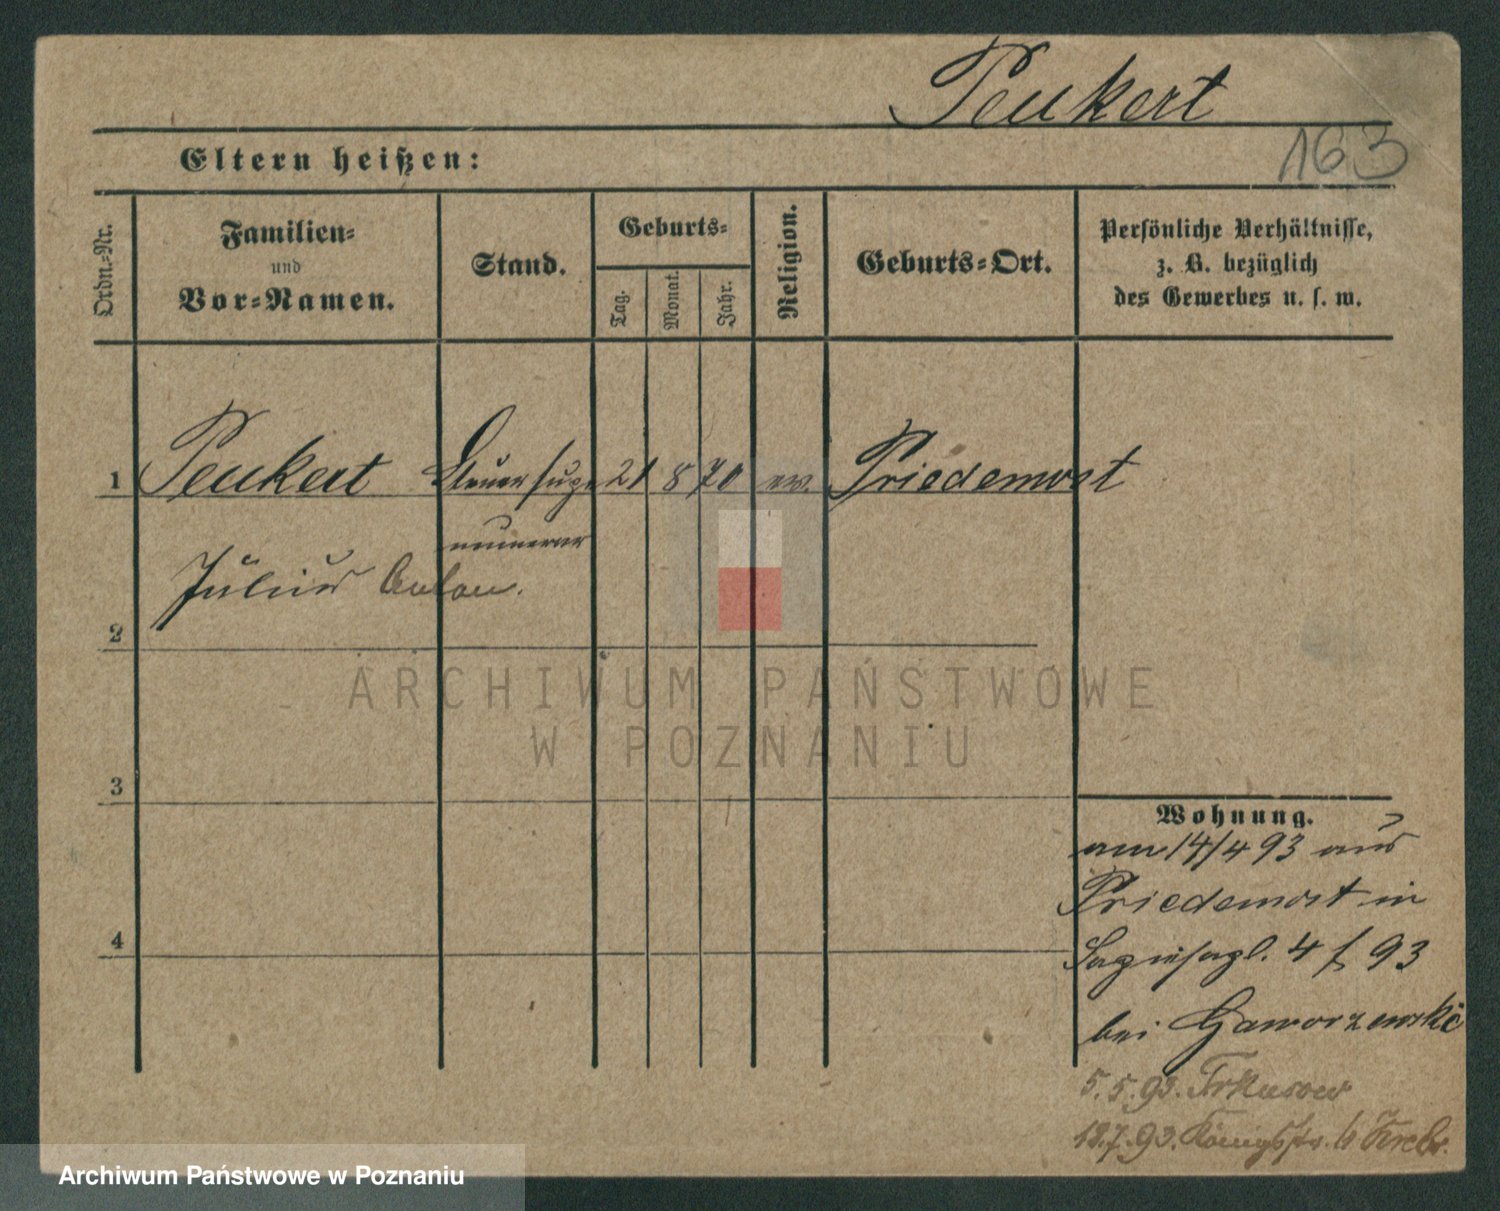 Peukert
163
Eltern heißen:
Ordn.-Nr.
Familien-
und
Vor-Namen.
Stand.
Geburts-
Tag.
Monat.
Jahr.
Religion.
Geburts-Ort.
Persönliche Verhältnisse,
z. B. bezüglich
des Gewerbes u. s. w.
1 Peukert Steuersupe 21 8 70 ev. Priedemost
numerar
Julius
2
ARCHIWUM PAŃSTWOWE
W POZNANIU
3
Wohnung.
am 14/4 93 aus
Priedemost in
4 93
4
bei Gaworzewski
5.5.93.
12.7.93. Königsstr.
Archiwum Państwowe w Poznaniu